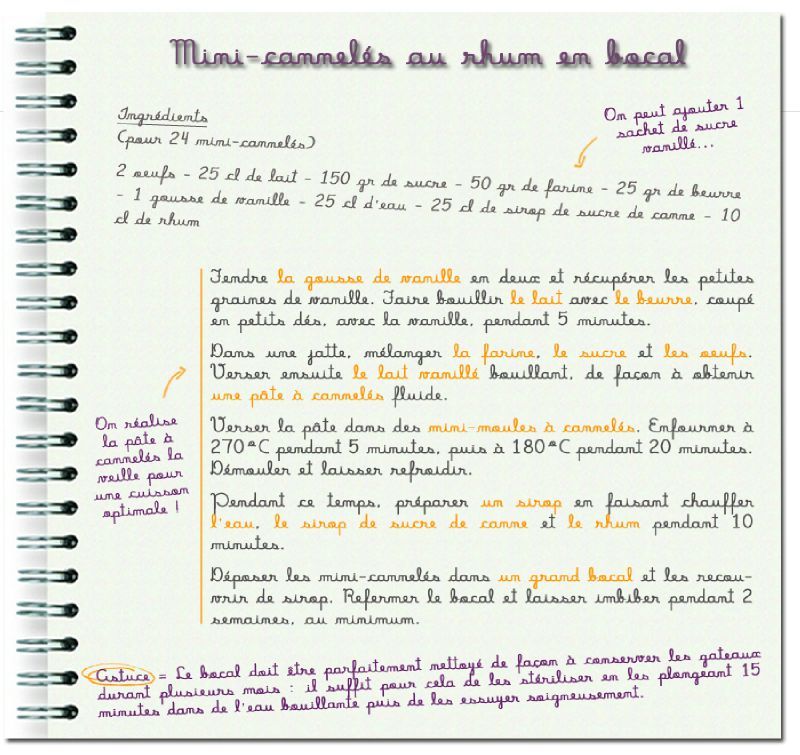 Mini-cannelés au rhum en bocal
Ingrédients
(pour 24 mini-cannelés)
On peut ajouter 1
sachet de sucre
vanillé...
2 oeufs - 25 cl de lait - 150 gr de sucre - 50 gr de farine - 25 gr de beurre
- 1 gousse de vanille - 25 cl d'eau - 25 cl de sirop de sucre de canne - 10
cl de rhum
Fendre la gousse de vanille en deux et récupérer les petites
graines de vanille. Faire bouillir le lait avec le beurre, coupé
en petits dés, avec la vanille, pendant 5 minutes.
Dans une jatte, mélanger la farine, le sucre et les oeufs.
Verser ensuite le lait vanillé bouillant, de façon à obtenir
une pâte à cannelés fluide.
On réalise
la pâte à
cannelés la
veille pour
une cuisson
optimale !
Verser la pâte dans des mini-moules à cannelés. Enfourner à
270°C pendant 5 minutes, puis à 180°C pendant 20 minutes.
Démouler et laisser refroidir.
Pendant ce temps, préparer un sirop en faisant chauffer
l'eau, le sirop de sucre de canne et le rhum pendant 10
minutes.
Déposer les mini-cannelés dans un grand bocal et les recou-
vrir de sirop. Refermer le bocal et laisser imbiber pendant 2
semaines, au minimum.
Astuce = Le bocal doit être parfaitement nettoyé de façon à conserver les gateaux
durant plusieurs mois : il suffit pour cela de les stériliser en les plongeant 15
minutes dans de l'eau bouillante puis de les essuyer soigneusement.